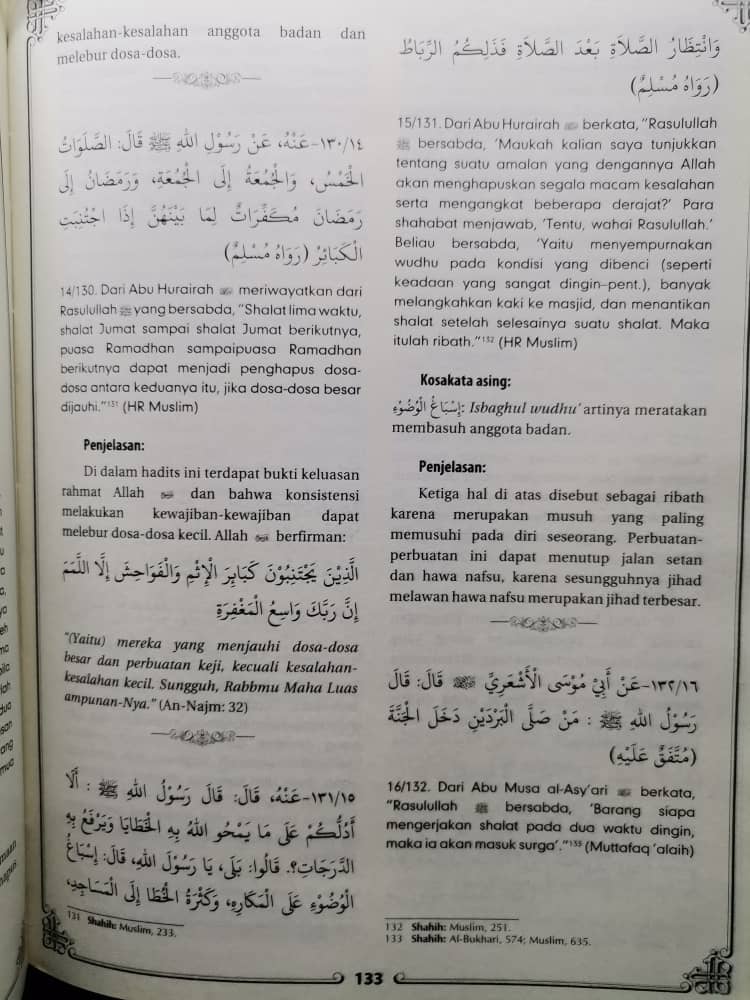 kesalahan-kesalahan anggota badan dan
melebur dosa-dosa.
١٣٠/١٤-عَنْهُ، عَنْ رَسُوْلِ اللهِ ﷺ قَالَ: الصَّلَوَاتُ
الْخَمْسُ، وَالْجُمُعَةُ إِلَى الْجُمُعَةِ، وَرَمَضَانُ إِلَى
رَمَضَانَ مُكَفِّرَاتٌ لِمَا بَيْنَهُنَّ إِذَا اجْتُنِبَتِ
الْكَبَائِرُ (رَوَاهُ مُسْلِمٌ)
14/130. Dari Abu Hurairah meriwayatkan dari
Rasulullah ﷺ yang bersabda, "Shalat lima waktu,
shalat Jumat sampai shalat Jumat berikutnya,
puasa Ramadhan sampaipuasa Ramadhan
berikutnya dapat menjadi penghapus dosa-
dosa antara keduanya itu, jika dosa-dosa besar
dijauhi."131 (HR Muslim)
Penjelasan:
Di dalam hadits ini terdapat bukti keluasan
rahmat Allah dan bahwa konsistensi
melakukan kewajiban-kewajiban dapat
melebur dosa-dosa kecil. Allah berfirman:
الَّذِيْنَ يَجْتَنِبُوْنَ كَبَابِرَ الْاِثْمِ وَالْفَوَاحِشَ اِلَّا اللَّمَمَ
اِنَّ رَبَّكَ وَاسِعُ الْمَغْفِرَةِ
"(Yaitu) mereka yang menjauhi dosa-dosa
besar dan perbuatan keji, kecuali kesalahan-
kesalahan kecil. Sungguh, Rabbmu Maha Luas
ampunan-Nya." (An-Najm: 32)
١٣١/١٥-عَنْهُ، قَالَ: قَالَ رَسُوْلُ اللهِ ﷺ: أَلَا
أَدُلُّكُمْ عَلَى مَا يَمْحُو اللهُ بِهِ الْخَطَايَا وَيَرْفَعُ بِهِ
الدَّرَجَاتِ؟. قَالُوا: بَلَى، يَا رَسُوْلَ اللهِ، قَالَ: إِسْبَاغُ
الْوُضُوْءِ عَلَى الْمَكَارِهِ، وَكَثْرَةُ الْخُطَا إِلَى الْمَسَاجِدِ،
131 Shahih: Muslim, 233.
وَانْتِظَارُ الصَّلَاةِ بَعْدَ الصَّلَاةِ فَذَلِكُمُ الرِّبَاطُ
(رَوَاهُ مُسْلِمٌ)
15/131. Dari Abu Hurairah berkata, "Rasulullah
ﷺ bersabda, 'Maukah kalian saya tunjukkan
tentang suatu amalan yang dengannya Allah
akan menghapuskan segala macam kesalahan
serta mengangkat beberapa derajat?' Para
shahabat menjawab, 'Tentu, wahai Rasulullah.'
Beliau bersabda, 'Yaitu menyempurnakan
wudhu pada kondisi yang dibenci (seperti
keadaan yang sangat dingin–pent.), banyak
melangkahkan kaki ke masjid, dan menantikan
shalat setelah selesainya suatu shalat. Maka
itulah ribath."132 (HR Muslim)
Kosakata asing:
إِسْبَاغُ الْوُضُوْءِ: Isbaghul wudhu' artinya meratakan
membasuh anggota badan.
Penjelasan:
Ketiga hal di atas disebut sebagai ribath
karena merupakan musuh yang paling
memusuhi pada diri seseorang. Perbuatan-
perbuatan ini dapat menutup jalan setan
dan hawa nafsu, karena sesungguhnya jihad
melawan hawa nafsu merupakan jihad terbesar.
١٣٢/١٦-عَنْ أَبِيْ مُوْسَى الْأَشْعَرِيِّ قَالَ: قَالَ
رَسُوْلُ اللهِ ﷺ : مَنْ صَلَّى الْبَرْدَيْنِ دَخَلَ الْجَنَّةَ
(مُتَّفَقٌ عَلَيْهِ)
16/132. Dari Abu Musa al-Asy'ari berkata,
"Rasulullah ﷺ bersabda, 'Barang siapa
mengerjakan shalat pada dua waktu dingin,
maka ia akan masuk surga'."133 (Muttafaq 'alaih)
132 Shahih: Muslim, 251.
133 Shahih: Al-Bukhari, 574; Muslim, 635.
133